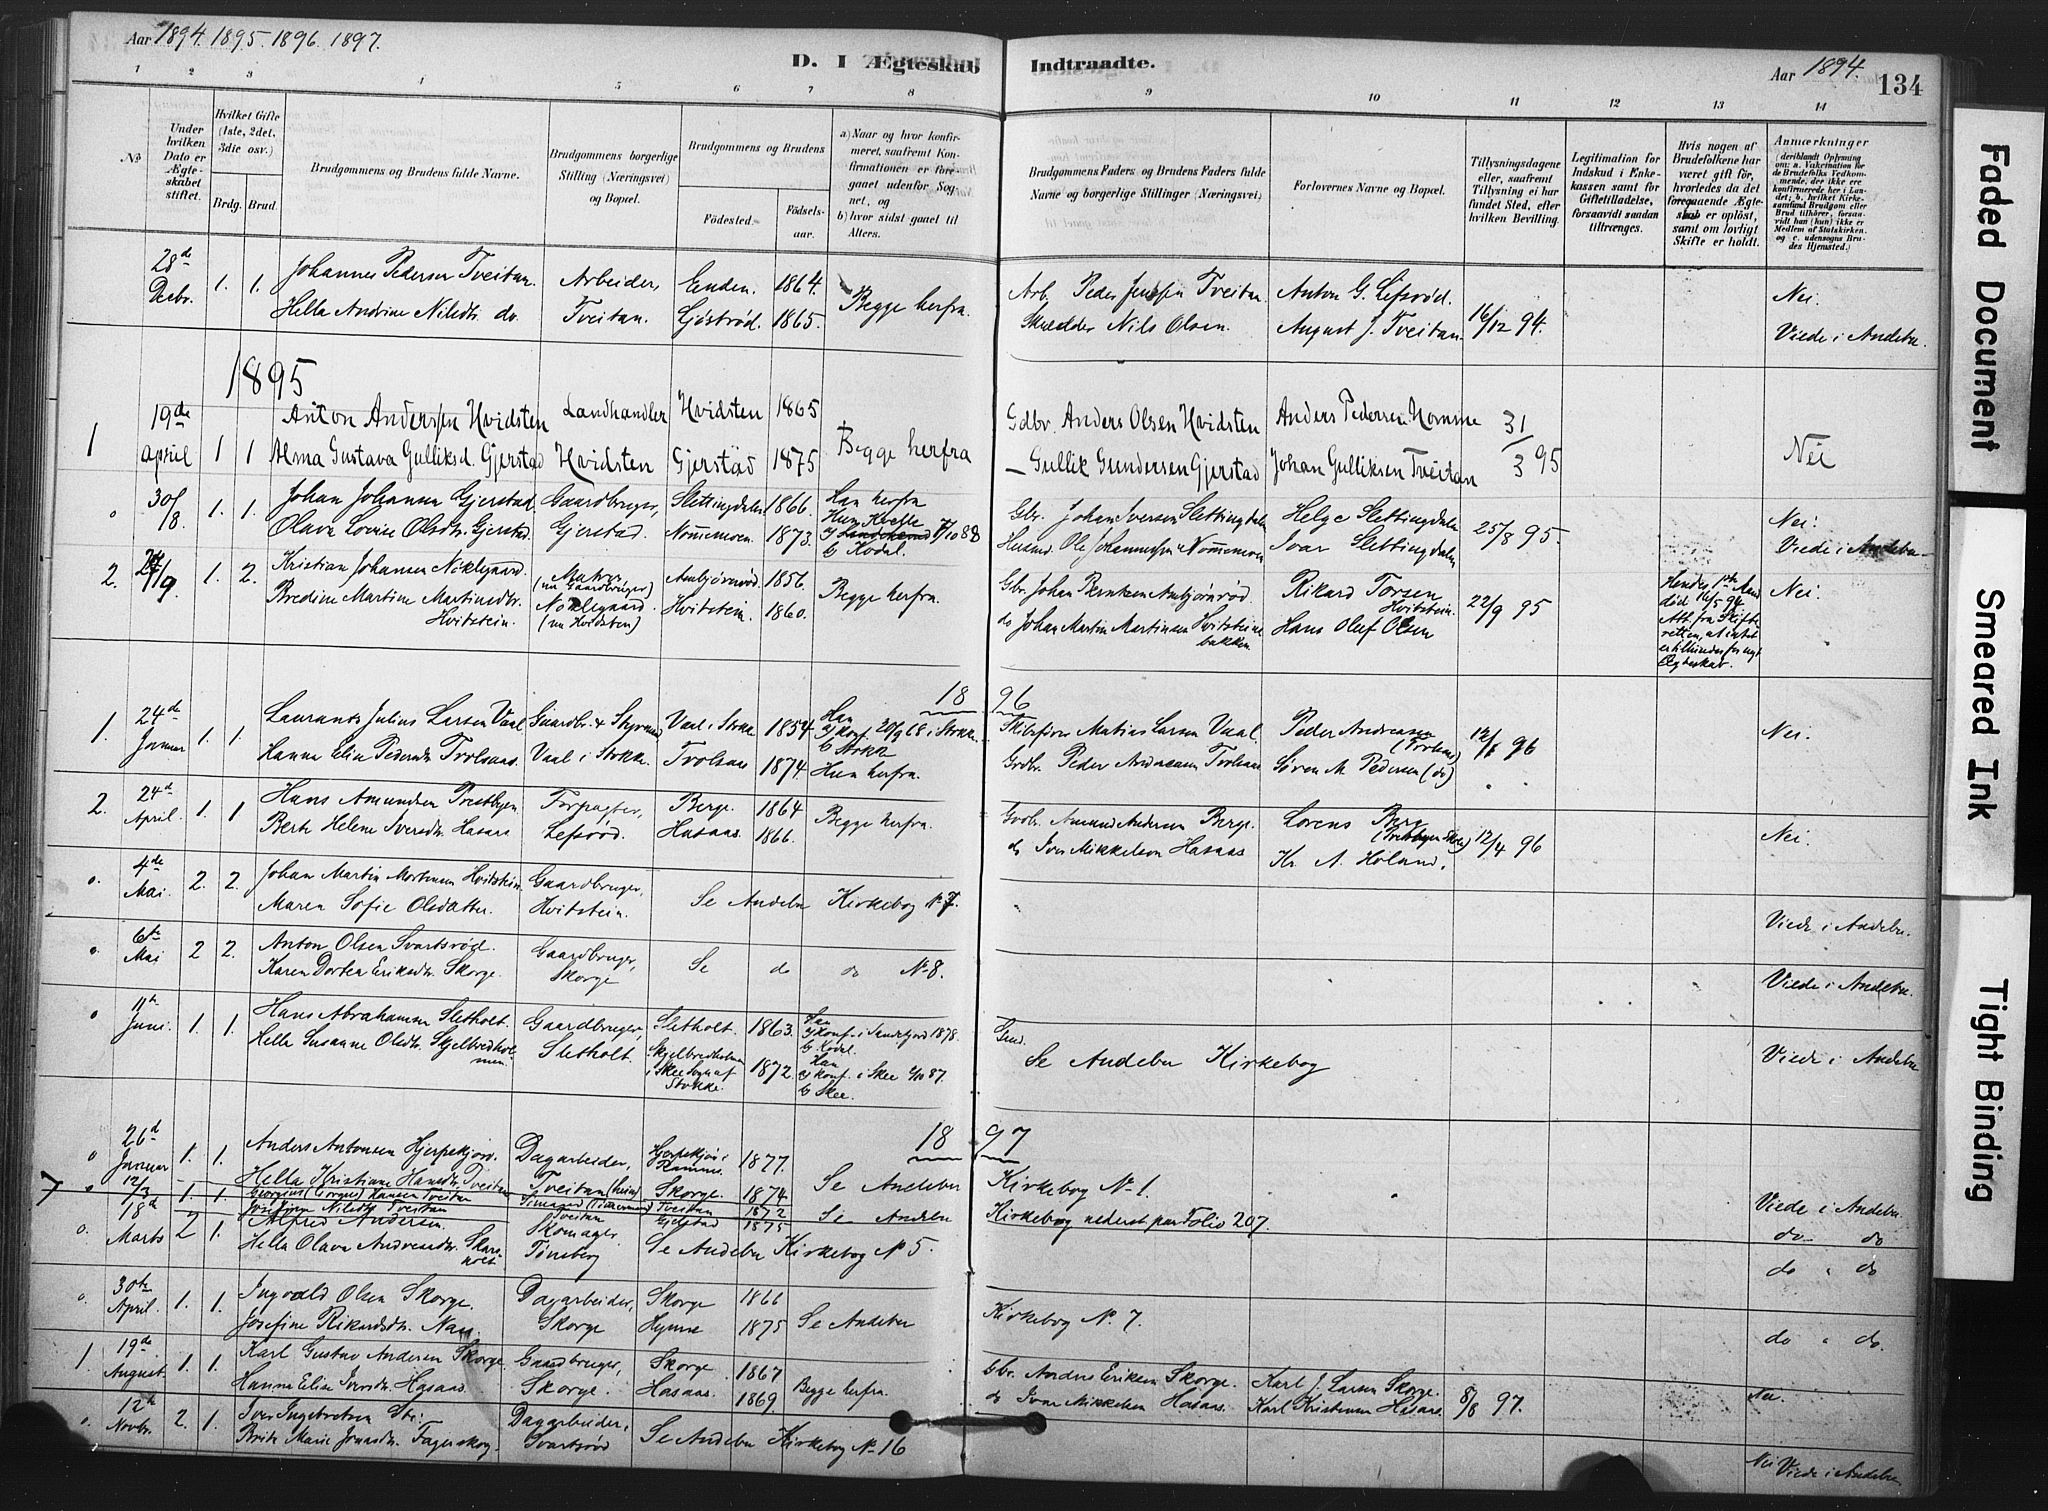 Aar 1894. 1895. 1896. 1897.
D. I Ægteskab Indtraadte.
Aar 1894.
134
1 2 3 4 5 6 7 8 9 10 11 12 13 14
No
Under hvilken Dato er Ægteskabet stiftet.
Hvilket Gifte (1ste, 2det, 3die osv.)
Brdg. Brud.
Brudgommens og Brudens fulde Navne.
Brudgommens borgerlige Stilling (Næringsvei) og Bopæl.
Brudgommens og Brudens
Fødested. Fødselsaar.
a) Naar og hvor konfirmeret, saafremt Konfirmationen er foregaaet udenfor Sognet, og
b) hvor sidst gaaet til Alters.
Brudgommens Faders og Brudens Faders fulde Navne og borgerlige Stillinger (Næringsvei)
Forlovernes Navne og Bopæl.
Tillysningsdagene eller, saafremt Tillysning ei har fundet Sted, efter hvilken Bevilling.
Legitimation for Indskud i Enkekassen samt for Giftetilladelse, forsaavidt saadan tiltrænges.
Hvis nogen af Brudefolkene har været gift før, hvorledes da det foregaaende Ægteskab er opløst, samt om lovligt Skifte er holdt.
Anmærkninger (deriblandt Oplysning om: a. Vakcination for de Brudefolks Vedkommende, der ikke ere konfirmerede her i Landet; b. hvilket Kirkesamfund Brudgom eller Brud tilhører, forsaavidt han (hun) ikke er Medlem af Statskirken, og c. udensogns Brudes Hjemsted.)
28de Decbr. 1. 1. Johannes Pedersen Tveitan. Arbeider, Enden. 1864. Begge herfra. Arb. Peder Jensen Tveitan. Anton G. Lefsrød. 16/12 94. Nei.
Helle Andrine Nilsdtr. do. Tveitan. Gjøstrød. 1865. Skrædder Nils Olsen. August J. Tveitan. Viede i Andebu.
1895
1 19de April 1 1 Anton Andersen Hvidsten Landhandler Hvidsten 1865 Begge herfra Gdbr. Anders Olsen Hvidsten Anders Pedersen Nomme 31/3 95 Nei
Alma Gustava Gulliksd. Gjerstad Hvidsten Gjerstad 1875 — Gullik Gundersen Gjerstad Johan Gulliksen Tveitan
o 30/8. 1. 1. Johan Johansen Gjerstad. Gaardbruger, Slettingdalen 1866. Han herfra Gbr. Johan Iversen Slettingdalen Helge Slettingdalen 25/8 95. Nei.
Olava Lovise Olsdtr. Gjerstad. Gjerstad. Nommemoen. 1873. b) Kodal. Husmd. Ole Johannessen Nommemoen Ivar Slettingdalen Viede i Andebu
2. 1. 2. Kristian Johansen Nøklegaard. (nu Gaardbruger) Aasbjørnrød. 1856. Begge herfra. Gbr. Johan Berntsen Rikard Torsen Hvitstein. 22/9 95 Nei.
Bredine Martine Martinsdtr. Hvitstein. Nøklegaard. (nu Hvidsten) Hvitstein. 1860. do Johan Martin Martinsen Hvitsteinsbakken Hans Oluf Olsen
død 16/5 94 Att. fra Skifteretten, at intet er tilhinder for nyt Ægteskab.
1896
1. 24de Januar 1. 1. Laurants Julius Larsen Vaal Gaardbr. & Styrmand Vaal i Stokke 1854. Han a) konf. 20/9 68 i Stokke. b) Stokke Skibsfører Matias Larsen Vaal. Peder Andreasen (Trolsaas) 96 Nei.
Hanna Elise Pedersdtr. Trolsaas. Vaal i Stokke. Trolsaas 1874 Hun herfra. Grdbr. Peder Andreasen Trolsaas Søren M. Pedersen (do)
2. 24de April. 1. 1 Hans Amundsen Prestbyen Forpagter, Berge. 1864 Begge herfra. Gaardbr. Amund Andersen Berge. Lorens Berg 12/4 96 Nei.
Berte Helene Iversdtr. Hasaas Lefsrød. Hasaas. 1866. do Iver Mikkelsen Hasaas Kr. A. Høland.
o. 4de Mai. 2. 2. Johan Martin Mortensen Hvitstein. Gaardbruger, Se Andebu Kirkebog No 7.
Maren Sofie Olsdatter. Hvitstein. Viede i Andebu.
o. 6te Mai 2 2. Anton Olsen Svartsrød. Gaardbruger, Se do do No 8.
Karen Dortea Eriksdtr. Skorge. Skorge Viede i Andebu.
o 11te Juni. 1. 1. Hans Abrahamsen Sletholt. Gaardbruger, Sletholt. 1863. Han a) konf. i Sandefjord 1878. b) Kodal. Se Andebu Kirkebog Viede i Andebu
Helle Susanne Olsdtr. Skjelbredholmen. Sletholt. Skjelbredholmen i Skee Sogn af Stokke. 1872. a) konf. i Skee 87. b) Skee.
1897
o 26de Januar 1. 1. Anders Antonsen Hjerpekjøn. Dagarbeider, Hjerpekjøn i Ramnes. 1877. Se Andebu Kirkebog No 1.
Helle Kristiane Hansdtr. Tveitan Tveitan (hun) Skorge. 1874 Viede i Andebu.
o 12/3 1. 1. Georgius (Jorgus) Hansen Tveitan Tveitan 1872 Se Andebu Kirkebog nederst paa Folio 207.
Josefine Nilsdtr. Tveitan Tveitan Gjelstad 1875 do do
o. 18de Marts 2 1. Alfred Andersen. Skomager. Se Andebu Kirkebog No 5.
Helle Olava Andreasdtr. Skarsholt. Tønsberg do " do
o. 30te April. 1. 1. Ingvald Olsen Skorge. Dagarbeider, Skorge 1866 Se Andebu Kirkebog No. 7.
Josefine Rikardsdtr. Næs. Skorge Hynne 1875 do " do.
1. 19de August. 1. 1. Karl Gustav Andersen Skorge. Gaardbruger, Skorge. 1867 Begge herfra. Gbr. Anders Eriksen Skorge. Karl J. Larsen Skorge. 8/8 97. Nei.
Hanna Elise Iversdtr. Hasaas. Skorge. Hasaas. 1869 do Ivar Mikkelsen Hasaas Karl Kristensen Hasaas.
o. 12te Novbr. 2. 1. Iver Ingebretsen Dagarbeider, Se Andebu Kirkebog No 16
Berte Marie Jonasdtr. Fagerskog. Svartsrød Nei Viede i Andebu
Faded Document
Smeared Ink
Tight Binding